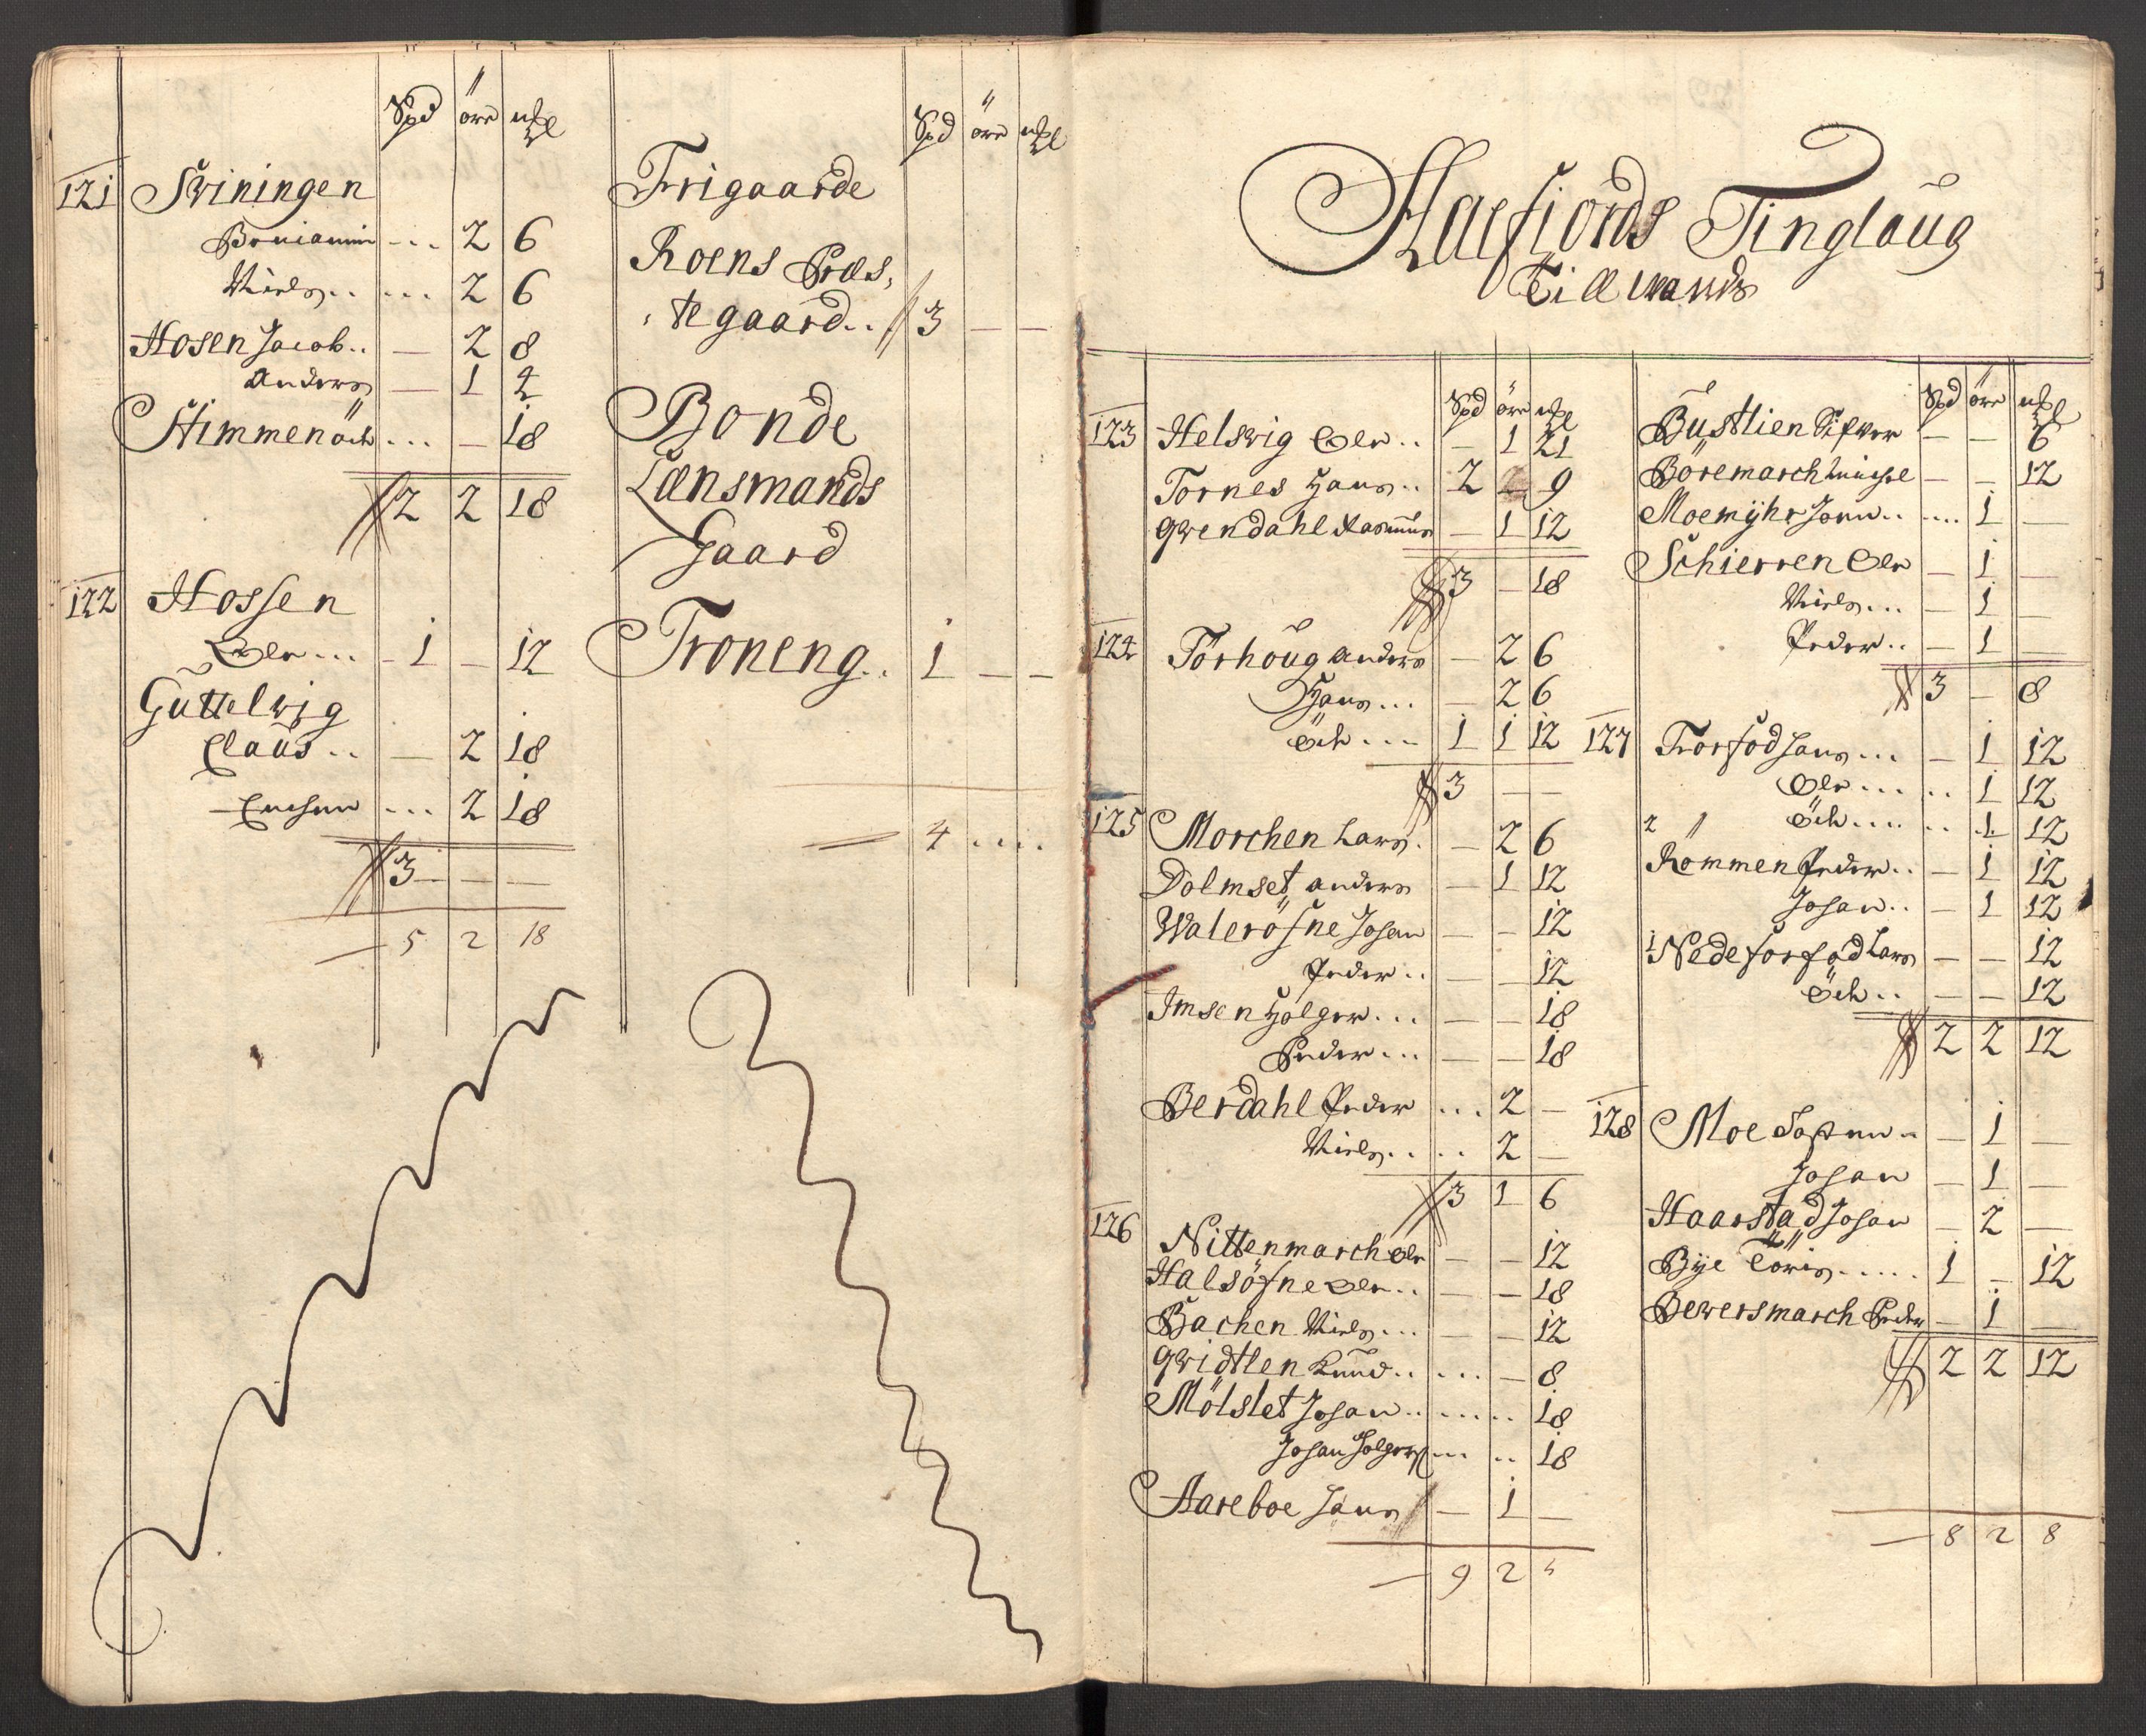 Spd öre mßl
121 Sviningen
Beniamin - .. 2 6
Niels .. ... 2 6
Hosen Jacob .. — 2 8
Anders — 1 4
Stimmen öde ... — 18
2 2 18
122 Hossen
Ole ... - 1 — 12
Guttelvig
Claus .. — 2 18
... 2 18
3 — — —
— 5 2 18
Spd öre mßl
Frigaarde
Roens Præs,
tegaard .. 3 — —
Bonde
Lænsmands
Gaard
Troneng .. 1 — —
4 ....
Haefiords Tinglaug
Spd öre mßl
123 Helsvig Ole .. — 1 21
Tornes Hans .. 2 9
Qvendahl Rasmus — 1 12
3 — 18
124 Torhoug Anders — 2 6
Hans ... — 2 6
öde ... 1 1 12
3 — —
125 Morchen Lars . — 2 6
Dolmset Anders — 1 12
Walerösne Johan — — 12
Peder .. — — 12
Imsen Holger ... — — 18
Peder ... — — 18
Berdahl Peder ... 2 —
Niels .. .. 2 —
3 1 6
126 Nittenmarch Ole — — 12
Halsösne Ole .. — — 18
Bachen Niels ... — — 12
Qvidtlen Knud .. ... — 8
Mölslet Johan .. ..... 18
Johan Holgers ... .. 18
Aareboe Hans — 1 —
— 9 2
Spd öre mßl
Bustlien Sifver — — 6
Böremarch Michel — — 12
Moemÿhr Jonn .. .... 1 —
Schierren Ole — 1 —
Niels ... — 1 —
Peder .. — 1 —
3 — 8
127 Forfod Hans ... — 1 12
Ole ... .. 1 12
2 öde .... .. 1 12
Rommen Peder .. — 1 12
Johan .. — 1 12
1 Nedeforfod Lars — — 12
öde .. — — 12
2 2 12
128 Moe — 1 —
Johan — 1 —
Haarstad Johan — 2 —
Bÿe Töris ..... 1 — 12
Bewersmarch Peder — 1 —
2 2 12
— 8 2 8